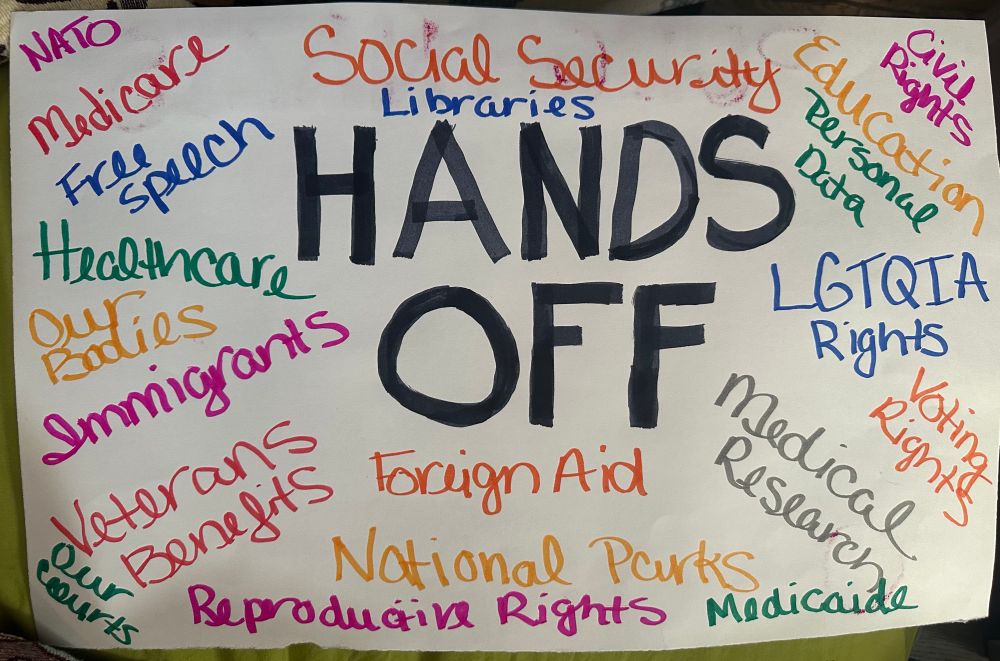 NATO
Medicare
Free
Speech
Healthcare
Our
Bodies
Immigrants
Veterans
Benefits
Our
Courts
Social Security
Libraries
HANDS
OFF
Foreign Aid
National Parks
Reproductive Rights
Medicaide
Education
Civil
Rights
Personal
Data
LGTQIA
Rights
Voting
Rights
Medical
Research